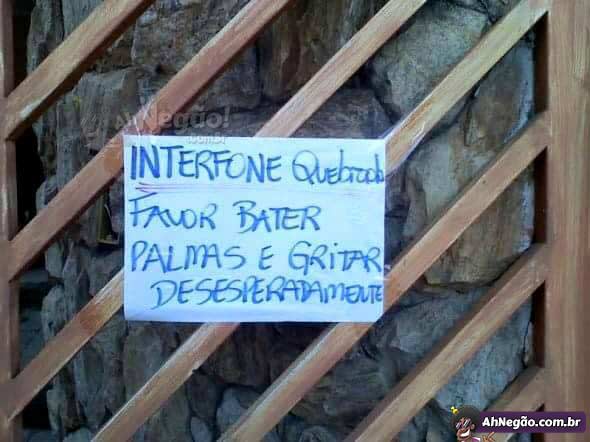 Ah Negão!
.com.br
INTERFONE Quebrado
FAVOR BATER
PALMAS E GRITAR
DESESPERADAMENTE
AhNegão.com.br